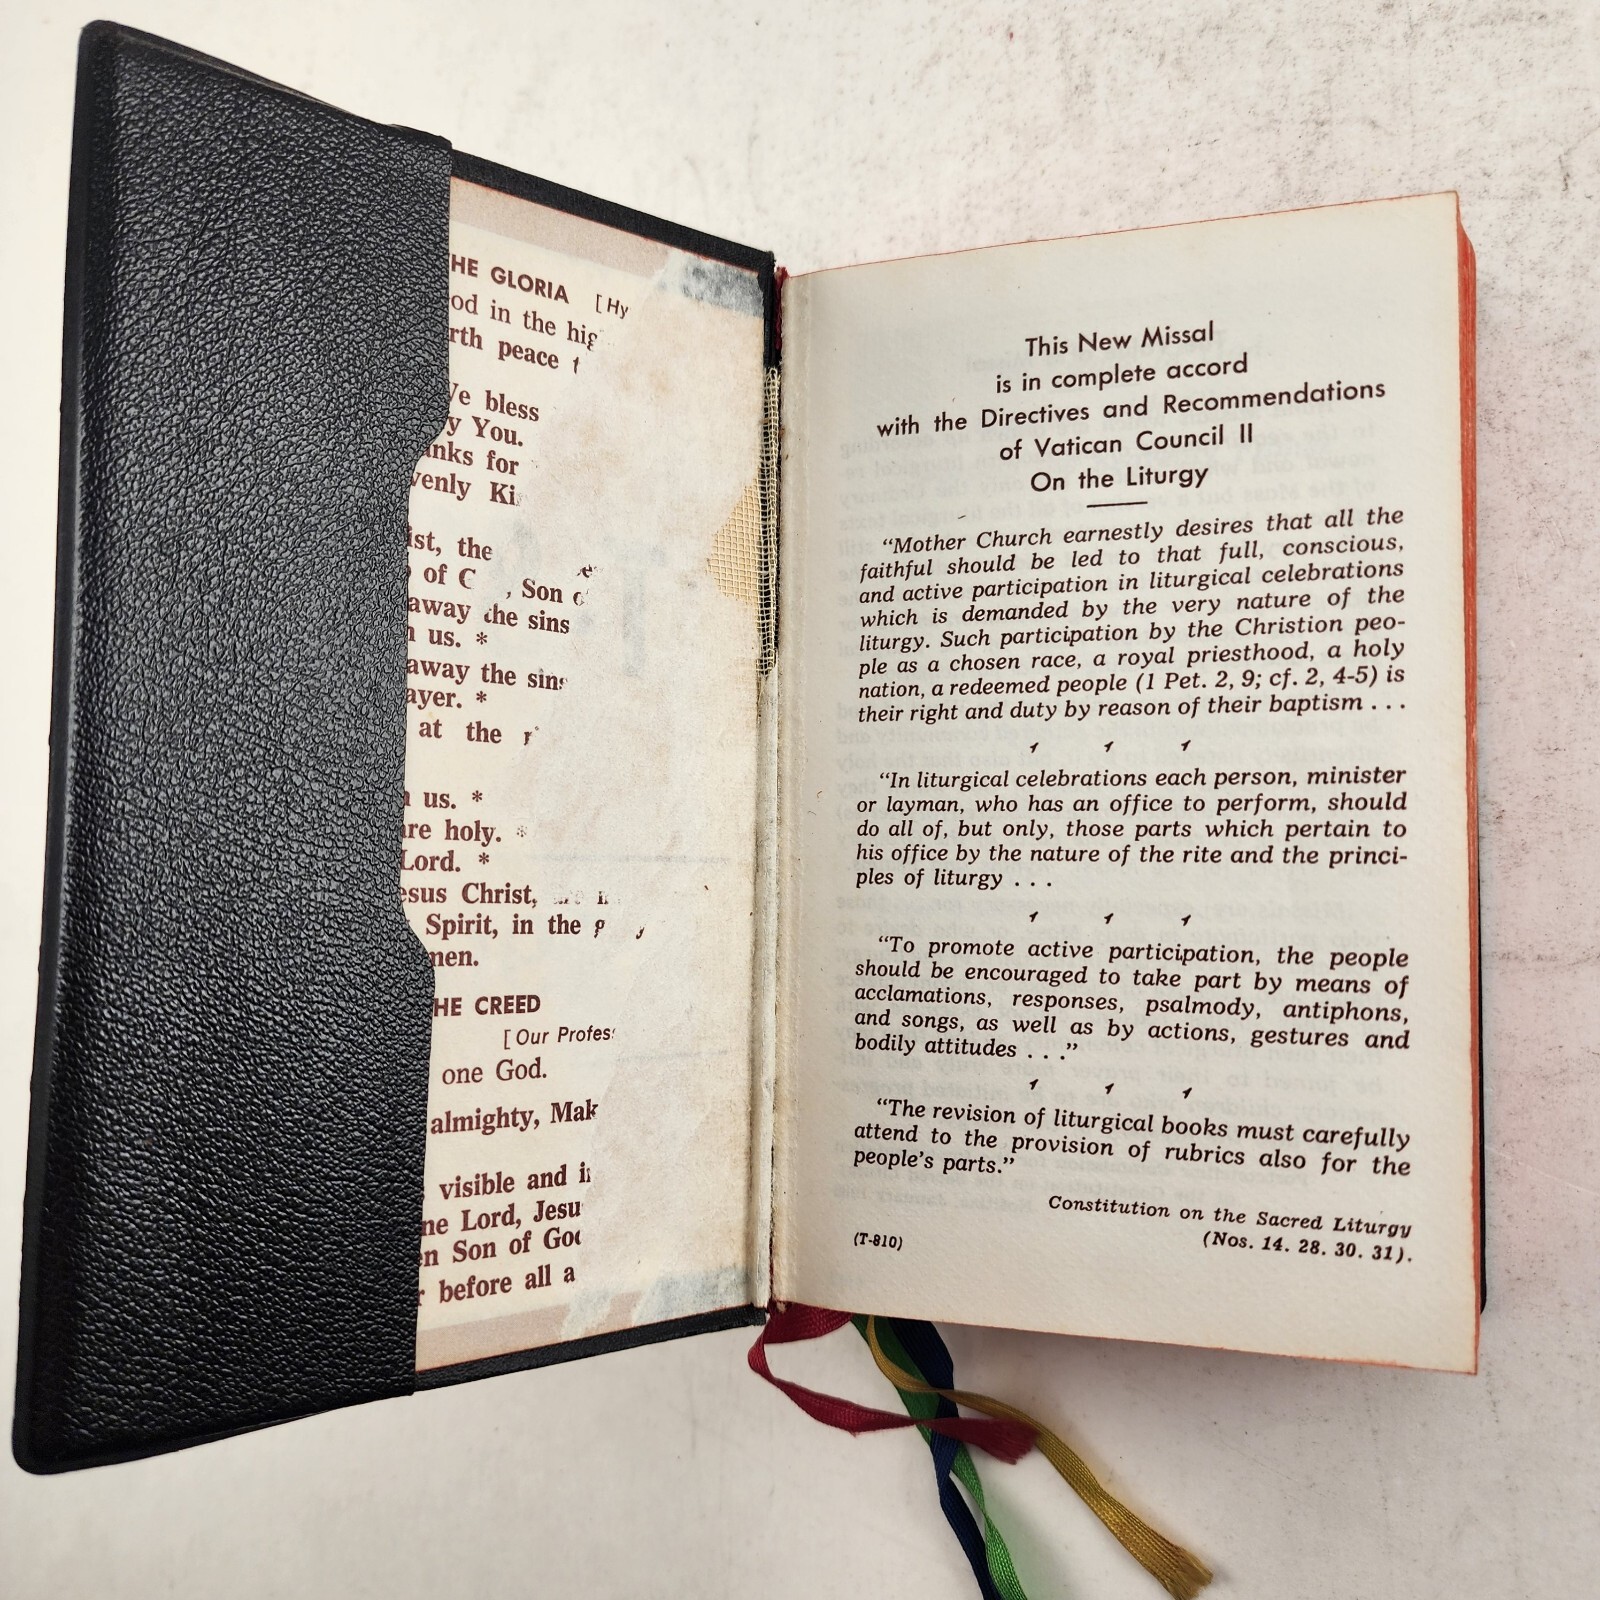 HE GLORIA [Hy
od in the hig
rth peace t
Ve bless
y You.
anks for
venly Ki
ist, the
of C , Son o
away the sins
n us. *
away the sins
ayer. *
at the r
n us. *
are holy. *
Lord. *
esus Christ,
Spirit, in the g y
men.
HE CREED
[Our Profes
one God.
almighty, Mak
visible and i
ne Lord, Jesu
en Son of God
r before all a
This New Missal
is in complete accord
with the Directives and Recommendations
of Vatican Council II
On the Liturgy
“Mother Church earnestly desires that all the
faithful should be led to that full, conscious,
and active participation in liturgical celebrations
which is demanded by the very nature of the
liturgy. Such participation by the Christion peo-
ple as a chosen race, a royal priesthood, a holy
nation, a redeemed people (1 Pet. 2, 9; cf. 2, 4-5) is
their right and duty by reason of their baptism . . .
“In liturgical celebrations each person, minister
or layman, who has an office to perform, should
do all of, but only, those parts which pertain to
his office by the nature of the rite and the princi-
ples of liturgy . . .
“To promote active participation, the people
should be encouraged to take part by means of
acclamations, responses, psalmody, antiphons,
and songs, as well as by actions, gestures and
bodily attitudes . . .”
“The revision of liturgical books must carefully
attend to the provision of rubrics also for the
people's parts.”
Constitution on the Sacred Liturgy
(T-810) (Nos. 14. 28. 30. 31).